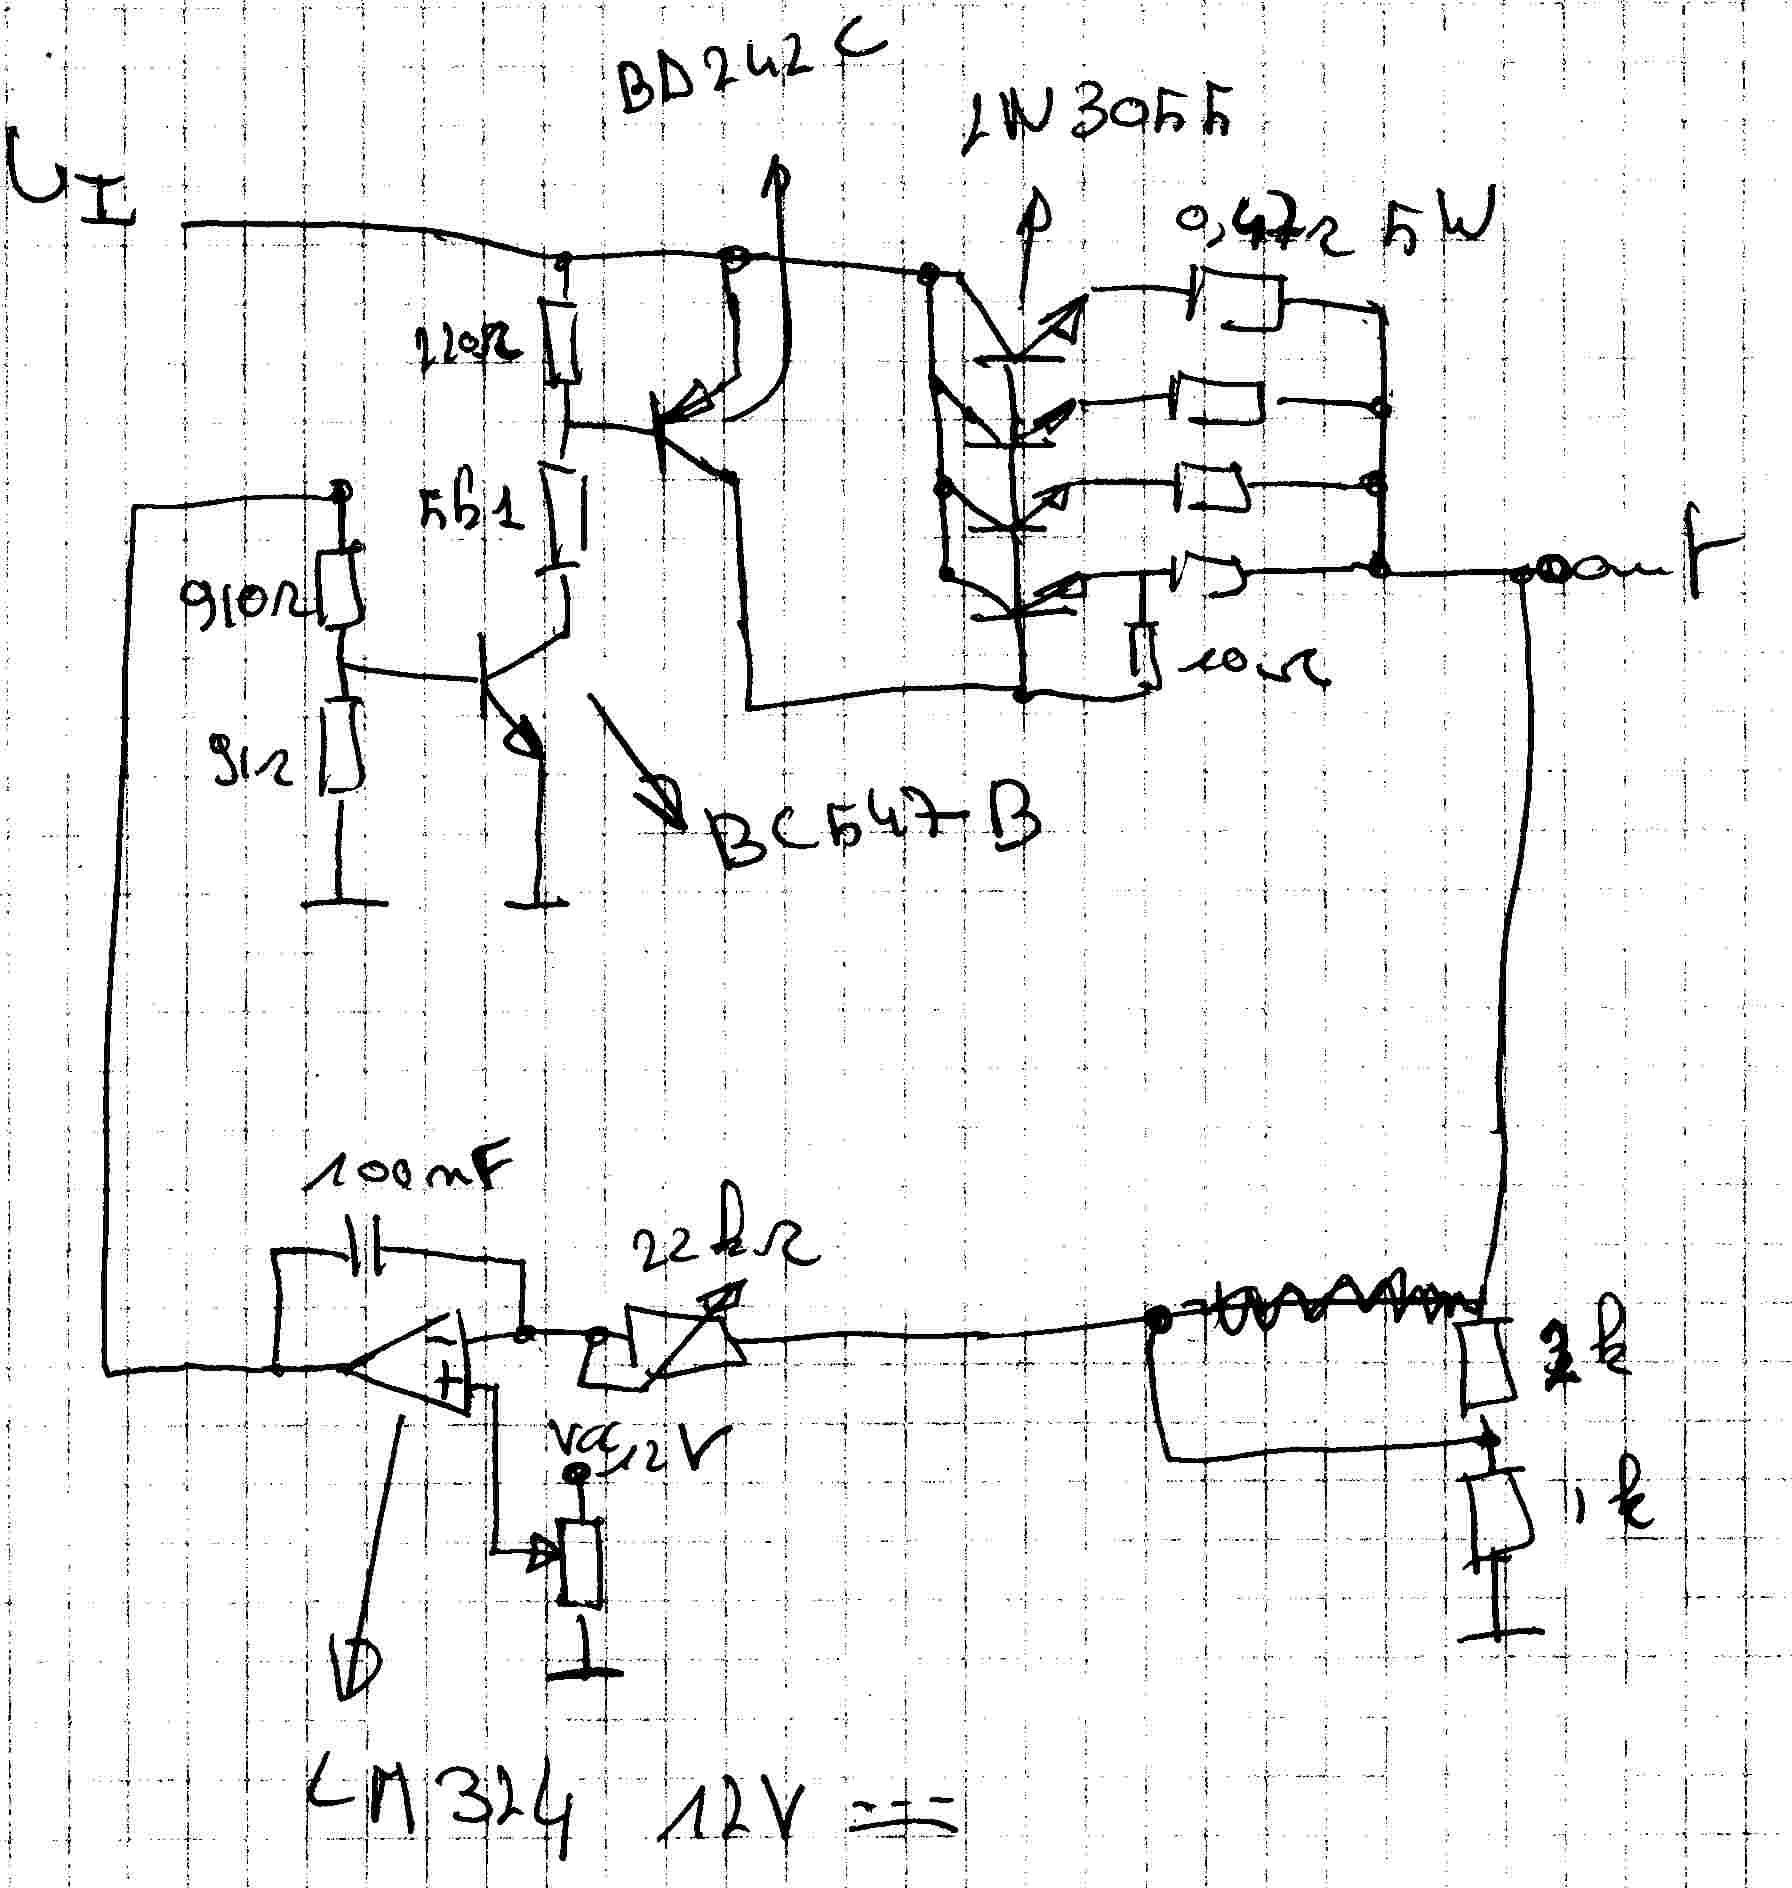 BD242C
2N3055
UI
0,47Ω 5W
220Ω
561
910Ω
out
10Ω
91Ω
BC547-B
100nF
22kΩ
k
Vcc 12V
1k
-
+
LM324 12V